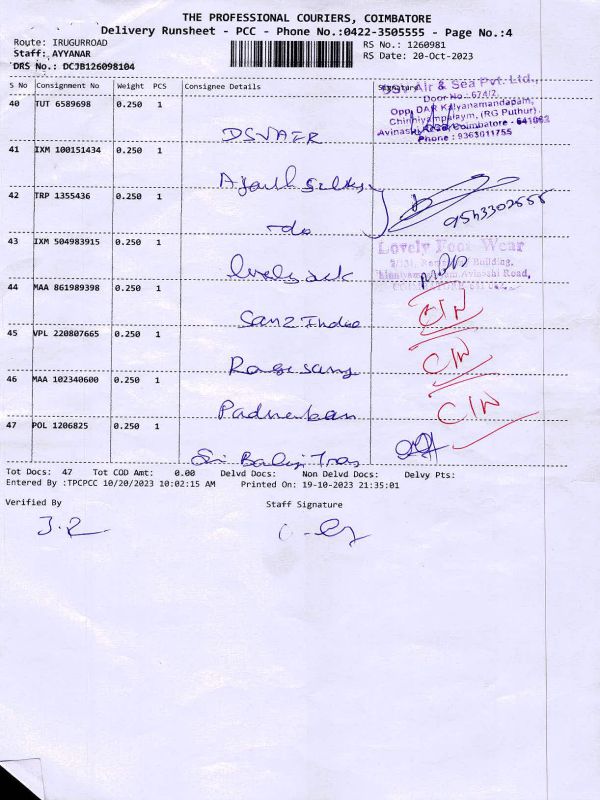 THE PROFESSIONAL COURIERS, COIMBATORE
Delivery Runsheet - PCC - Phone No.:0422-3505555 - Page No.:4
Route: IRUGURROAD
RS No.: 1260981
Staff: AYYANAR
RS Date: 20-Oct-2023
DRS No.: DCJB126098104
S No Consignment No Weight PCS Consignee Details Signature
40 TUT 6589698 0.250 1
DSV AIR
Air & Sea Pvt. Ltd.,
Door No.: 674/2,
Opp. DAR Kalyanamandapam,
Chinniyampalayam, (RG Puthur),
Avinashi Road, Coimbatore - 641062
Phone : 9363011755
41 IXM 100151434 0.250 1
42 TRP 1355436 0.250 1
do
43 IXM 504983915 0.250 1
Lovely Foot Wear
Building,
Avinashi Road,
44 MAA 861989398 0.250 1
C/N
45 VPL 220807665 0.250 1
C/N
46 MAA 102340600 0.250 1
C/N
47 POL 1206825 0.250 1
Sri Balaji Trans
Tot Docs: 47 Tot COD Amt: 0.00 Delvd Docs: Non Delvd Docs: Delvy Pts:
Entered By :TPCPCC 10/20/2023 10:02:15 AM Printed On: 19-10-2023 21:35:01
Verified By Staff Signature